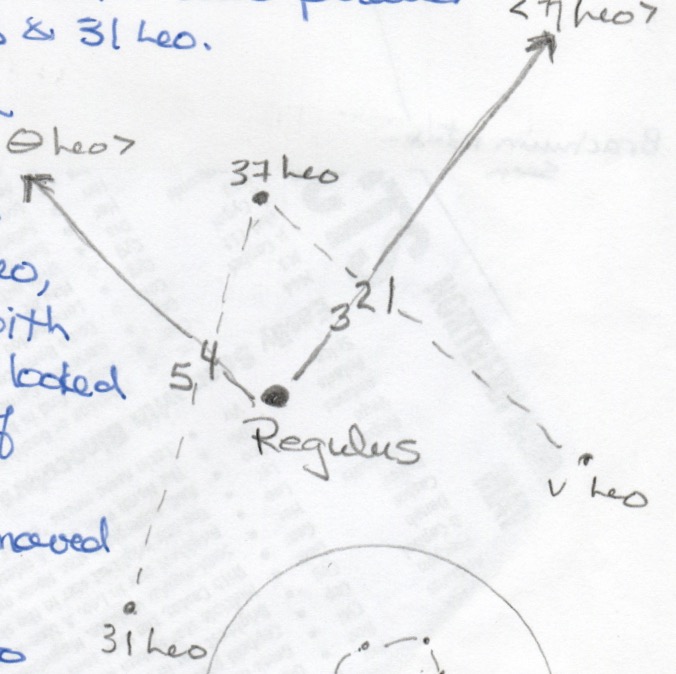 & 31 Leo.
<η Leo>
θ Leo>
37 Leo
eo,
21
ith
3
looked
4
5
of
Regulus
ν Leo
moved
31 Leo